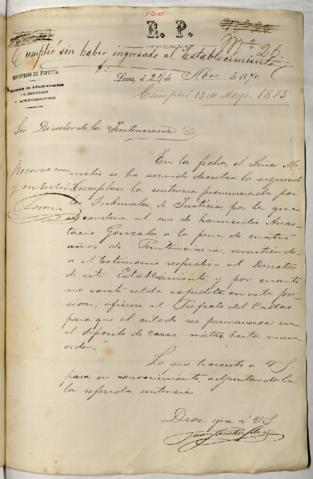 E. P.
Nº 26.
Cumplió sin haber ingresado al Establecimiento
MINISTERIO DE JUSTICIA
Lima, á 24 de Nbre. de 1870.
Cumplió 13 de Mayo 1873
Sor Director de la Penitenciaría
En la fecha, el Señor Mi-
nistro se ha servido decretar lo siguiente
Cúmplase la sentencia pronunciada por
los Tribunales de Justicia por la que
se condena al reo de homicidio Anas-
tacio Gonzales a la pena de cuatro
años de Penitenciaria, remitién-
dose el testimonio respectivo al Director
de este Establecimiento, y por cuanto
no existe celda expedita en esta pri-
sion, ofíciese al Prefecto del Callao
para que el citado reo permanezca en
el depósito de casas matas hasta nueva
orden."
Lo que trascribo a U.S.
para su conocimiento, adjuntándole
la referida sentencia
Dios gue á US.